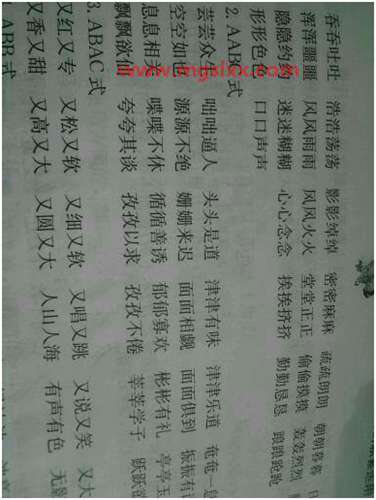 吞吞吐吐 浩浩荡荡 影影绰绰 密密麻麻 疏疏朗朗 朝朝暮暮
浑浑噩噩 风风雨雨 风风火火 堂堂正正 偷偷摸摸 轰轰烈烈
隐隐约约 迷迷糊糊 心心念念 挨挨挤挤 勤勤恳恳 踉踉跄跄
形形色色 口口声声
2. AABC式
芸芸众生 咄咄逼人 头头是道 津津有味 津津乐道 奄奄一
空空如也 源源不绝 姗姗来迟 面面相觑 面面俱到 振振有
息息相关 喋喋不休 循循善诱 郁郁寡欢 彬彬有礼 亭亭玉
飘飘欲仙 夸夸其谈 孜孜以求 孜孜不倦 莘莘学子 跃跃欲
3. ABAC式
又红又专 又松又软 又细又软 又唱又跳 又说又笑 又大
又香又甜 又高又大 又圆又大 人山人海 有声有色 无
ABB式